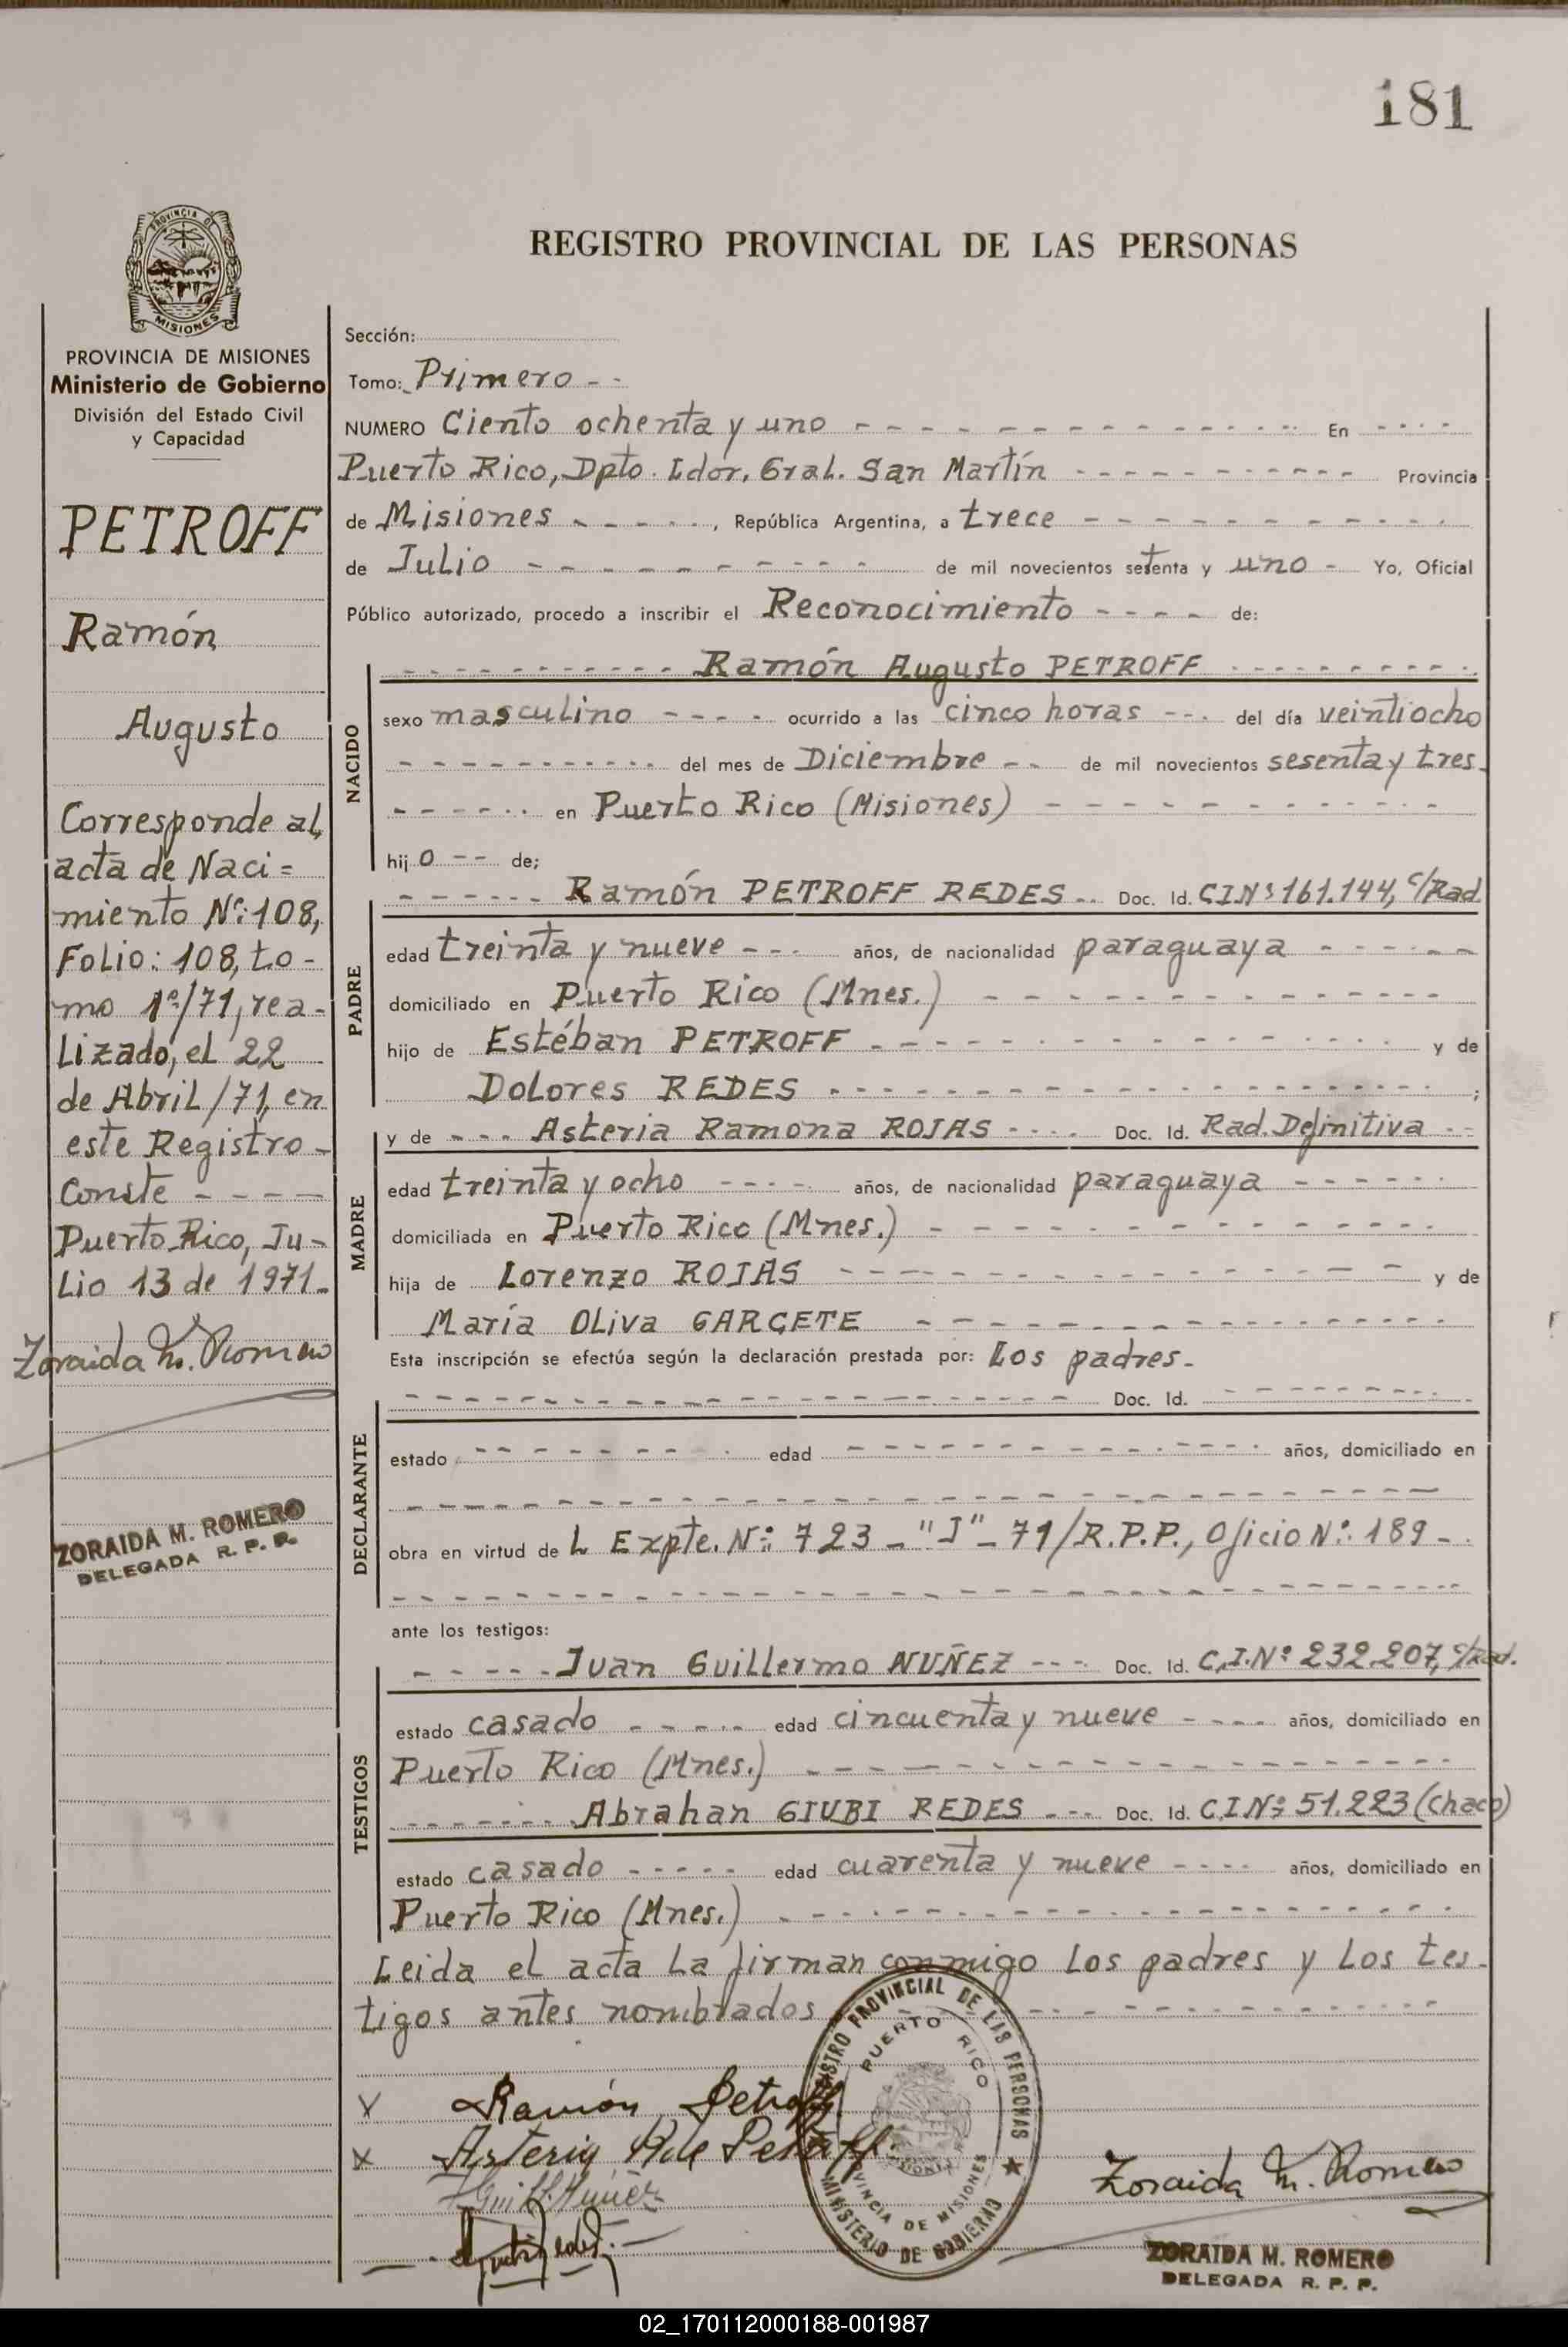 181
PROVINCIA DE
MISIONES
PROVINCIA DE MISIONES
Ministerio de Gobierno
División del Estado Civil
y Capacidad
PETROFF
Ramón
Augusto
Corresponde al
acta de Naci=
miento Nº:108,
Folio: 108, to-
mo 1º/71, rea-
lizado, el 22
de Abril/71, en
este Registro-
Conste - - - -
Puerto Rico, Ju-
lio 13 de 1971.-
Zoraida M. Romero
ZORAIDA M. ROMERO
DELEGADA R. P. P.
REGISTRO PROVINCIAL DE LAS PERSONAS
Sección:
Tomo: Primero - -
NUMERO Ciento ochenta y uno - - - En - - -
Puerto Rico, Dpto. Ldor. Gral. San Martín - - - Provincia
de Misiones - - - , República Argentina, a trece - - -
de Julio - - - de mil novecientos setenta y uno - Yo, Oficial
Público autorizado, procedo a inscribir el Reconocimiento - - - de:
NACIDO
- - - Ramón Augusto PETROFF - - -
sexo masculino - - - ocurrido a las cinco horas - - - del día veintiocho
- - - del mes de Diciembre - - de mil novecientos sesenta y tres.
- - - en Puerto Rico (Misiones) - - -
hijo - - de;
PADRE
- - - Ramón PETROFF REDES - - Doc. Id. C.I.Nº 161.144, c/Rad.
edad treinta y nueve - - - años, de nacionalidad paraguaya - - -
domiciliado en Puerto Rico (Mnes.) - - -
hijo de Estéban PETROFF - - - y de
Dolores REDES - - - ;
MADRE
y de - - - Asteria Ramona ROJAS - - - Doc. Id. Rad. Definitiva - -
edad treinta y ocho - - - años, de nacionalidad paraguaya - - -
domiciliada en Puerto Rico (Mnes.) - - -
hija de Lorenzo ROJAS - - - y de
María Oliva GARCETE - - -
Esta inscripción se efectúa según la declaración prestada por: Los padres.-
DECLARANTE
- - - Doc. Id. - - -
estado - - - edad - - - años, domiciliado en
- - -
obra en virtud de L Expte. Nº: 723 - "J" - 71/R.P.P., Oficio Nº. 189 - .
- - -
ante los testigos:
TESTIGOS
- - - Juan Guillermo NUÑEZ - - - Doc. Id. C.I.Nº 232.207, c/Rad.
estado casado - - - edad cincuenta y nueve - - - años, domiciliado en
Puerto Rico (Mnes.) - - -
- - - Abrahan GIUBI REDES - - - Doc. Id. C.I.Nº 51.223 (Chaco)
estado casado - - - edad cuarenta y nueve - - - años, domiciliado en
Puerto Rico (Mnes.) - - -
Leida el acta la firman conmigo los padres y los tes-
tigos antes nombrados - - -
REGISTRO PROVINCIAL DE LAS PERSONAS
PUERTO RICO
PROVINCIA DE MISIONES
MINISTERIO DE GOBIERNO
X Ramón Petroff
X Asteria R de Petroff
Guill. Núñez
Zoraida M. Romero
ZORAIDA M. ROMERO
DELEGADA R. P. P.
02_170112000188-001987